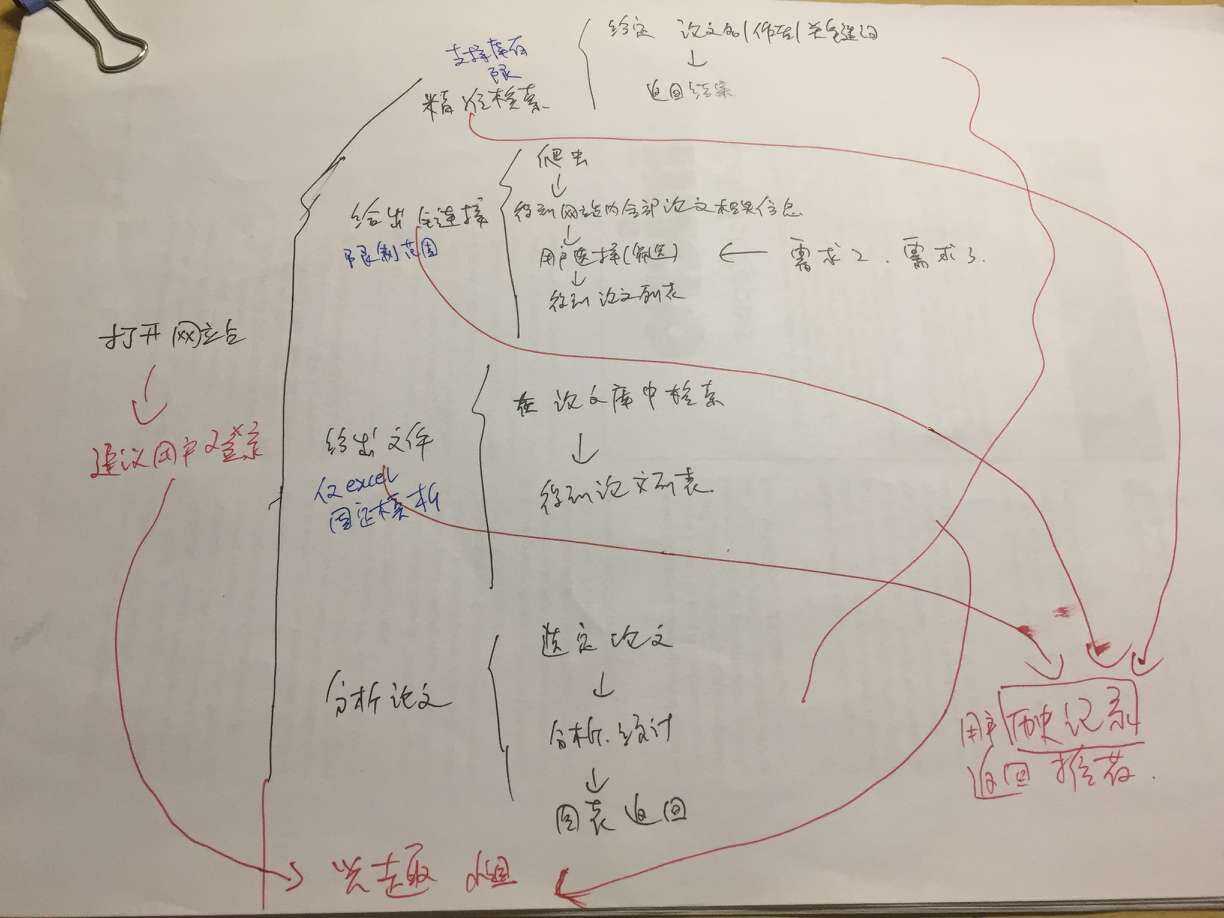 给定 论文名/作者/关键词
↓
返回结果
支持库存
限
精准检索
爬虫
↓
得到网站内全部论文相关信息
↓
用户选择(筛选) ← 需求2、需求3.
↓
得到论文列表
给出 链接
限制范围
打开网站
↓
建议用户登录
在论文库中检索
↓
得到论文列表
给出文件
仅excel
固定模板
选定论文
↓
分析、统计
↓
图表返回
分析论文
用户历史记录
返回 推荐.
兴趣 组